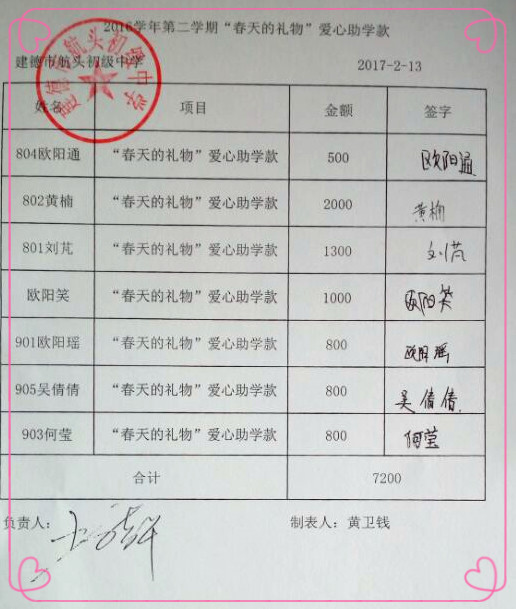 2016学年第二学期“春天的礼物”爱心助学款
建德市航头初级中学 2017-2-13
姓名 项目 金额 签字
804欧阳通 “春天的礼物”爱心助学款 500 欧阳通
802黄楠 “春天的礼物”爱心助学款 2000 黄楠
801刘芃 “春天的礼物”爱心助学款 1300 刘芃
欧阳笑 “春天的礼物”爱心助学款 1000 欧阳笑
901欧阳瑶 “春天的礼物”爱心助学款 800 欧阳瑶
905吴倩倩 “春天的礼物”爱心助学款 800 吴倩倩
903何莹 “春天的礼物”爱心助学款 800 何莹
合计 7200
负责人： 制表人：黄卫钱